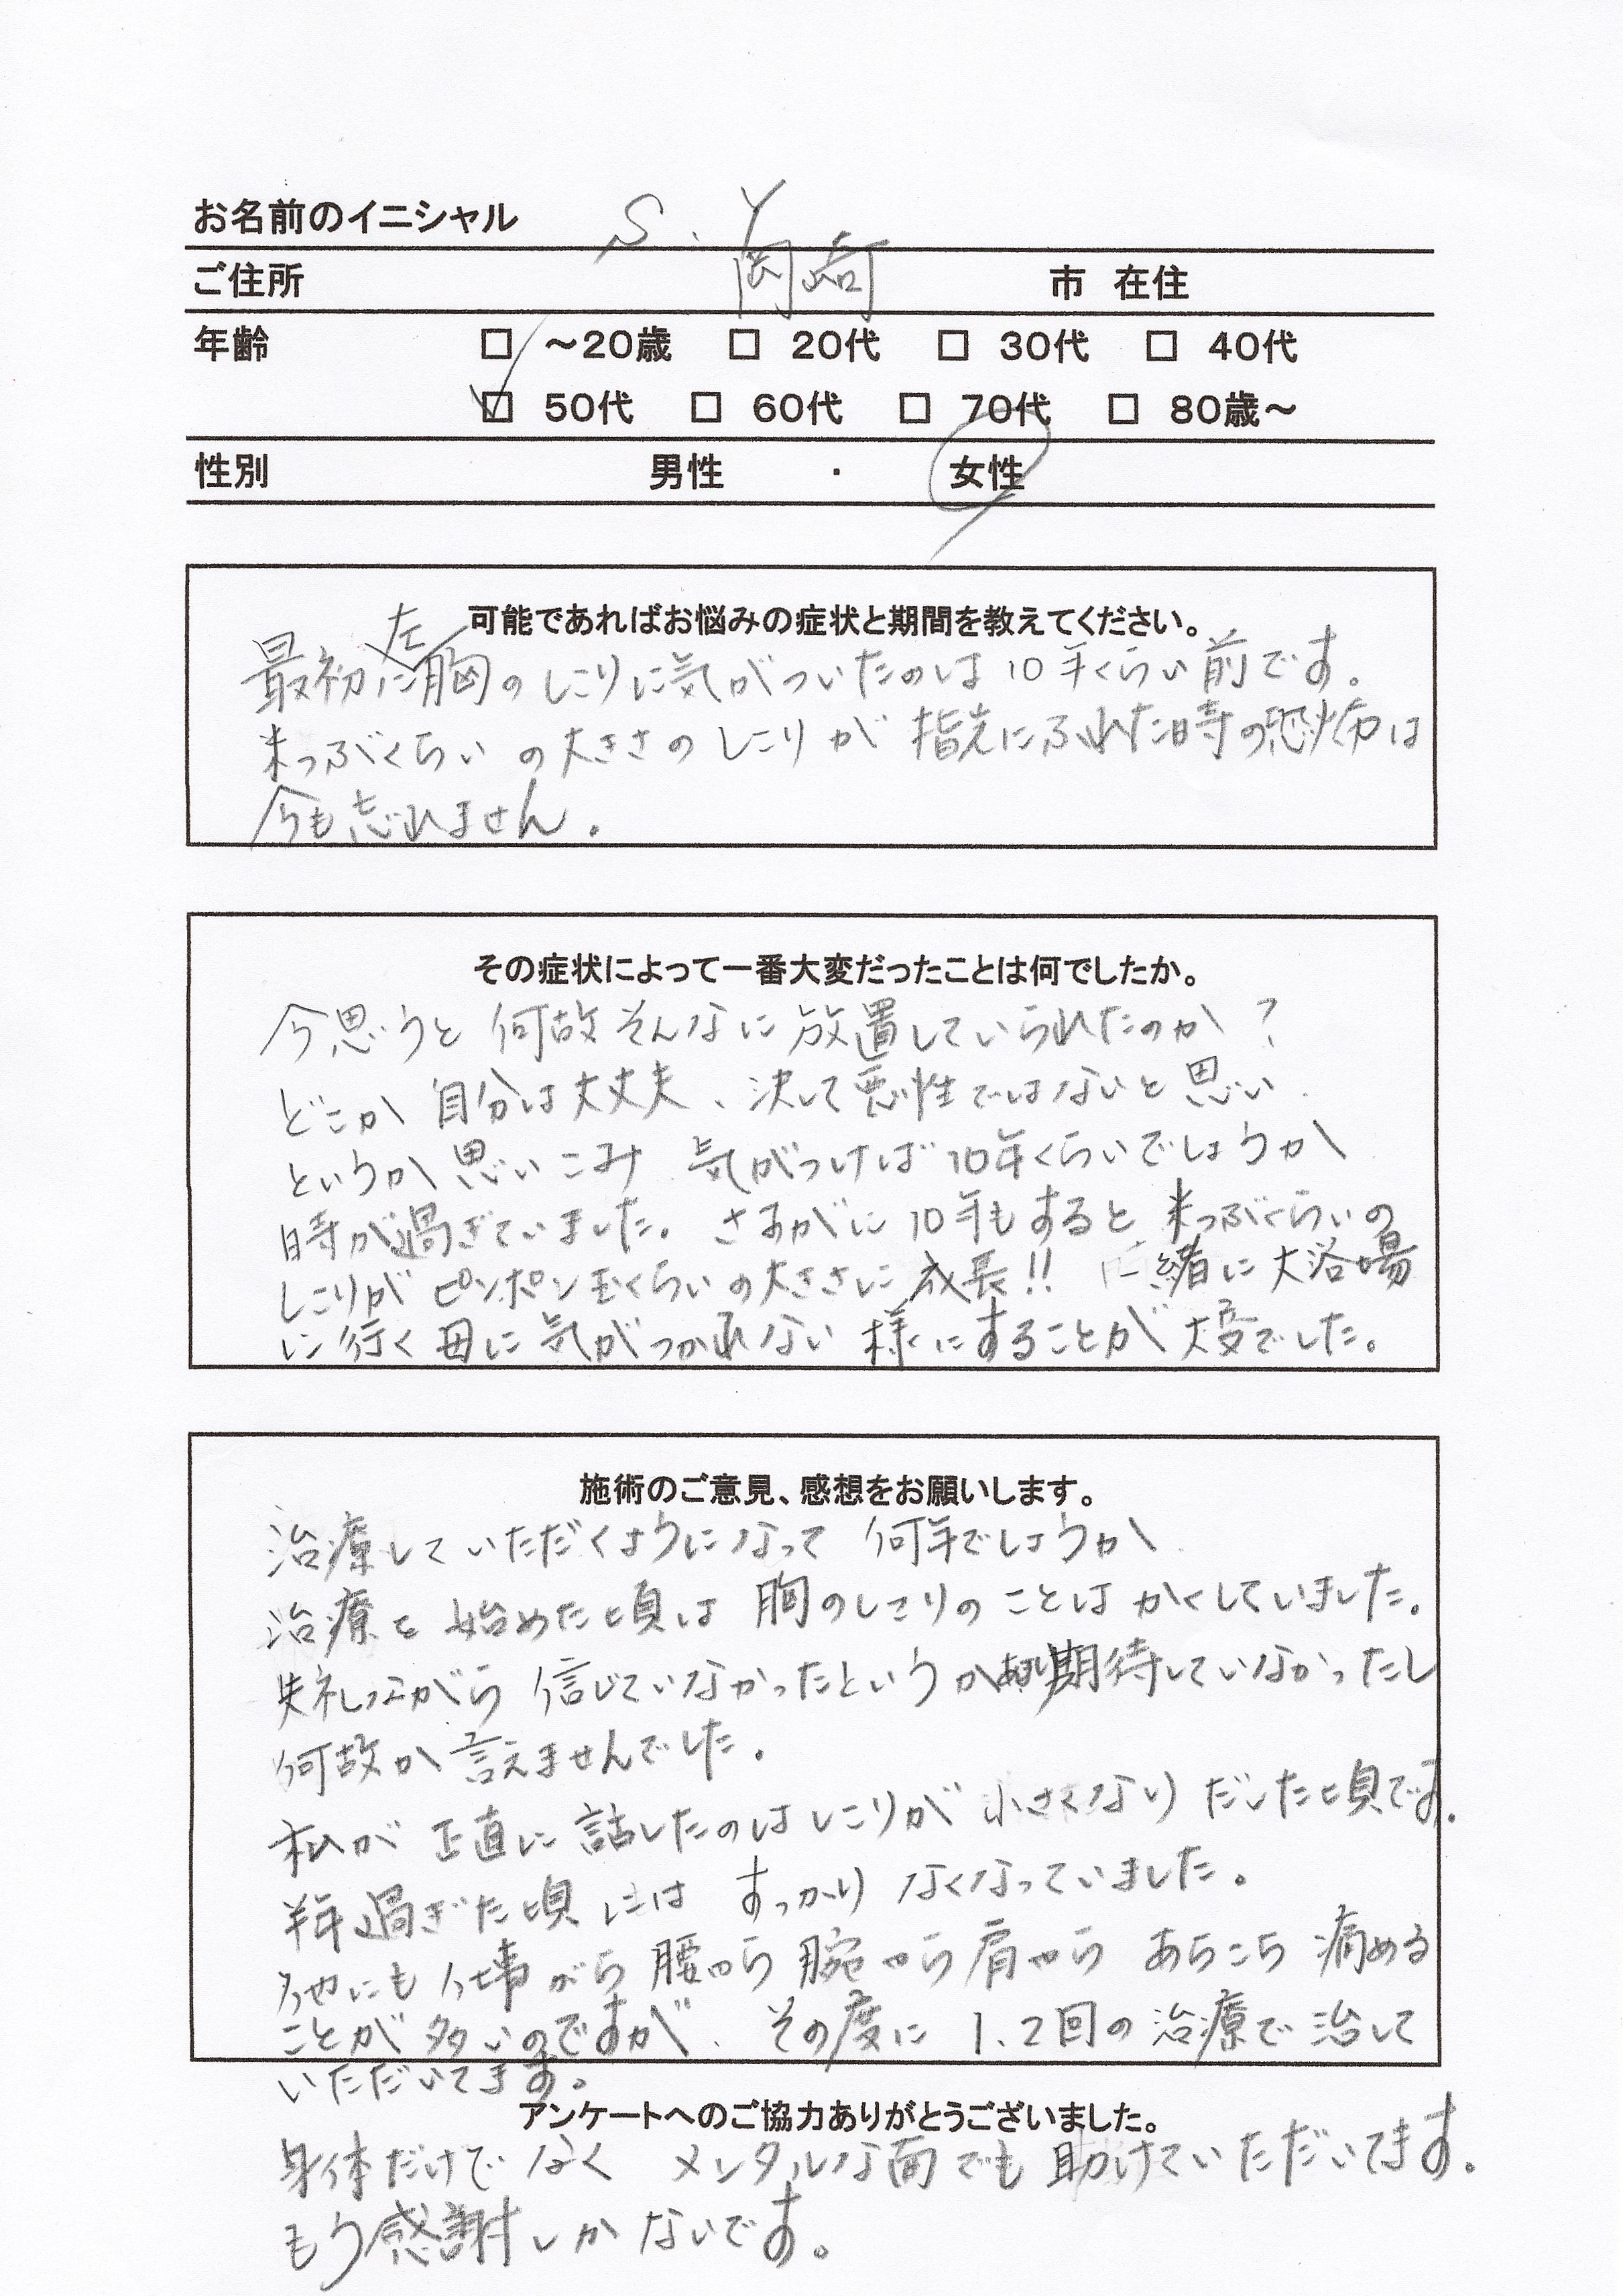 お名前のイニシャル S.Y
ご住所 岡崎 市 在住
年齢 □ ～20歳 □ 20代 □ 30代 □ 40代
☑ 50代 □ 60代 □ 70代 □ 80歳～
性別 男性 ・ 女性
可能であればお悩みの症状と期間を教えてください。
最初に左胸のしこりに気がついたのは10年くらい前です。
米つぶくらいの大きさのしこりが指先にふれた時の恐怖は
今も忘れません。
その症状によって一番大変だったことは何でしたか。
今思うと何故そんなに放置していられたのか?
どこか自分は大丈夫、決して悪性ではないと思い
というか思いこみ 気がつけば10年くらいでしょうか
時が過ぎていました。さすがに10年もすると米つぶくらいの
しこりがピンポン玉くらいの大きさに成長!! 一緒に大浴場
に行く母に気がつかれない様にすることが大変でした。
施術のご意見、感想をお願いします。
治療していただくようになって何年でしょうか
治療を始めた頃は胸のしこりのことはかくしていました。
失礼ながら信じていなかったというか期待していなかったし
何故か言えませんでした。
私が正直に話したのはしこりが小さくなりだした頃です。
半年過ぎた頃にはすっかりなくなっていました。
他にも仕事がら腰やら腕やら肩やらあちこち痛める
ことが多いのですが、その度に1、2回の治療で治して
いただいてます。
アンケートへのご協力ありがとうございました。
身体だけでなくメンタルな面でも助けていただいてます。
もう感謝しかないです。